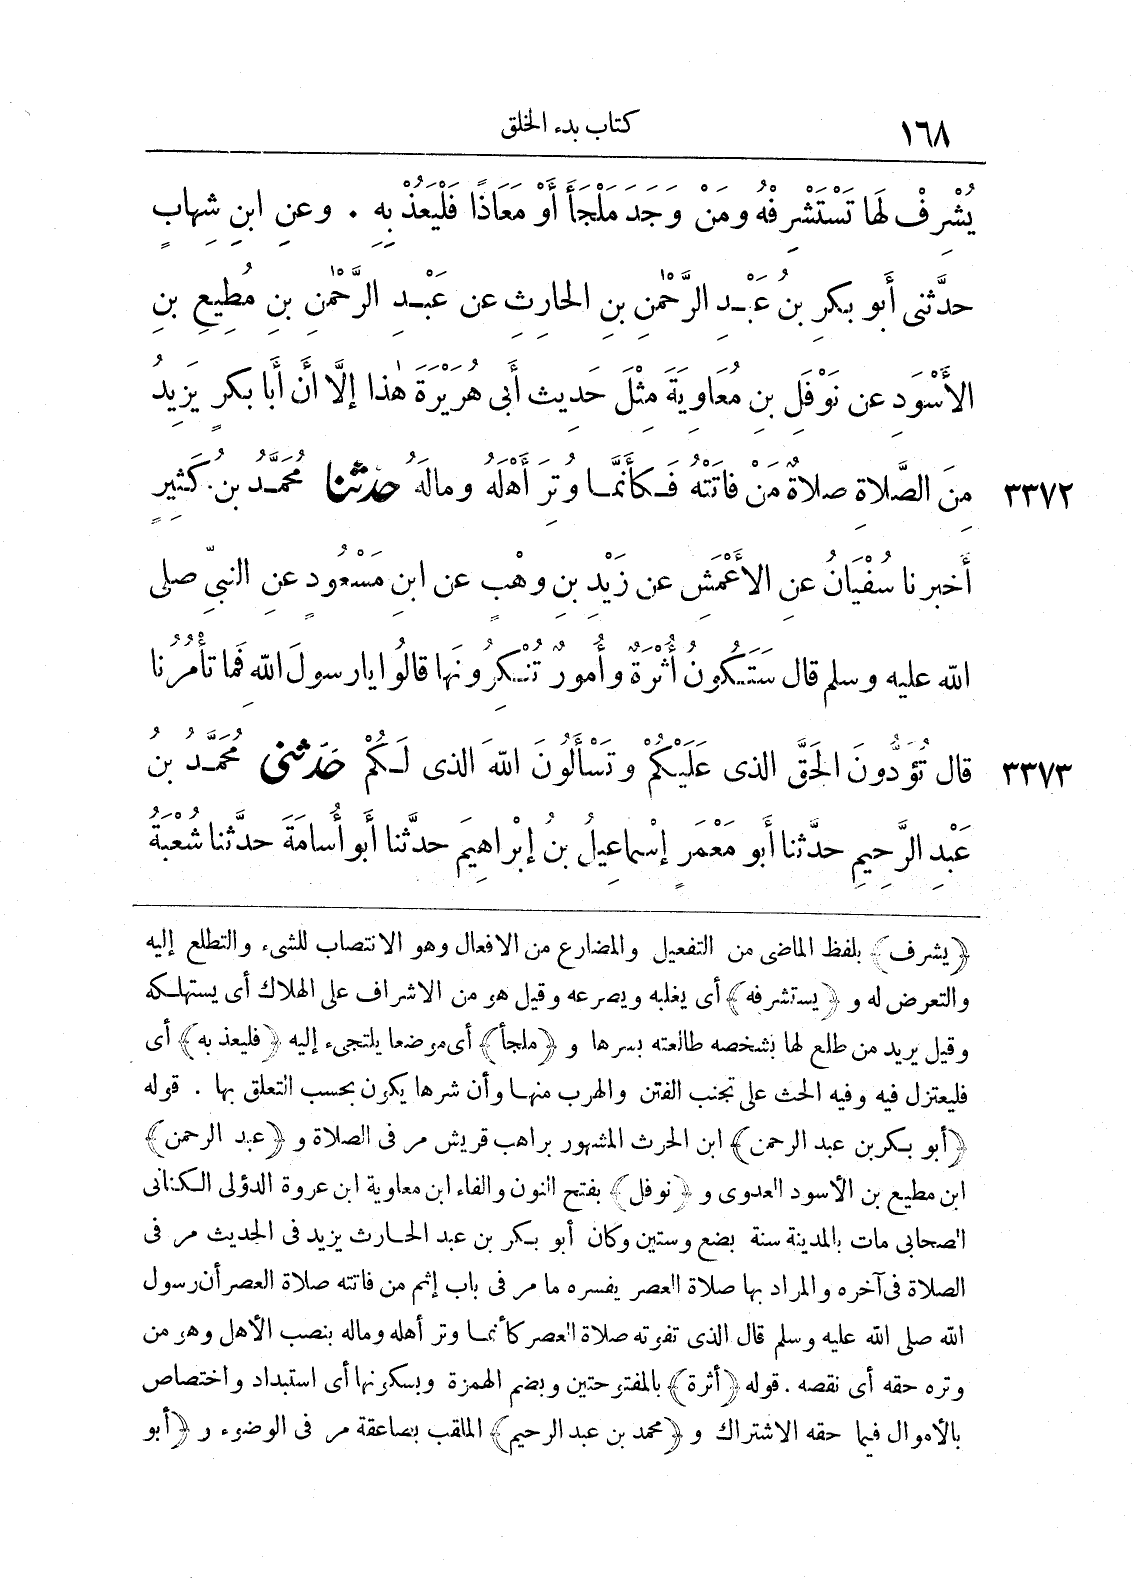 ١٦٨
كتاب بدء الخلق
يُشْرِفْ لَها تَسْتَشْرِفْهُ ومَنْ وَجَدَ مَلْجَأً أَوْ مَعَاذًا فَلْيَعُذْ بِهِ . وعنِ ابنِ شِهابٍ
حدَّثنى أَبو بكرِ بنُ عَبْدِ الرَّحْمٰنِ بنِ الحارِثِ عن عَبْدِ الرَّحْمٰنِ بنِ مُطِيعِ بنِ
الأَسْوَدِ عن نَوْفَلِ بنِ مُعَاوِيَةَ مِثْلَ حَدِيث أَبى هُرَيْرَةَ هٰذا إِلَّا أَنَّ أَبا بكرٍ يَزِيدُ
٣٣٧٢ مِنَ الصَّلاةِ صلاةٌ مَنْ فاتَتْهُ فَكأَنَّمَا وُتِرَ أَهْلَهُ ومالَهُ حَدَّثنا مُحَمَّدُ بن كَثِيرٍ
أَخبرنا سُفْيَانُ عنِ الأَعْمَشِ عن زَيْدِ بنِ وهْبٍ عن ابنِ مَسْعُودٍ عنِ النبىِّ صلى
الله عليه وسلم قال سَتَكُونُ أُثْرَةٌ وأُمورٌ تُنْكِرُونَها قالُوا يارسولَ الله فَما تأْمُرُنا
٣٣٧٣ قال تُؤَدُّونَ الحَقَّ الذى عَلَيْكُمْ وتَسْأَلُونَ اللهَ الذى لَكُمْ حَدّثنى مُحَمَّدُ بنُ
عَبْدِ الرَّحِيمِ حدَّثنا أَبو مَعْمَرٍ إِسْماعِيلُ بنُ إِبْراهِيمَ حدَّثنا أَبو أُسامَةَ حدَّثنا شُعْبَةُ
﴿يشرف﴾ بلفظ الماضى من التفعيل والمضارع من الافعال وهو الانتصاب للشىء والتطلع إليه
والتعرض له و ﴿يستشرفه﴾ أى يغلبه ويصرعه وقيل هو من الاشراف على الهلاك أى يستهلكه
وقيل يريد من طلع لها بشخصه طالعته بسرها و ﴿ملجأ﴾ أى موضعا يلتجىء إليه ﴿فليعذ به﴾ أى
فليعتزل فيه وفيه الحث على تجنب الفتن والهرب منها وأن شرها يكون بحسب التعلق بها . قوله
﴿أبو بكر بن عبد الرحمن﴾ ابن الحرث المشهور براهب قريش مر فى الصلاة و ﴿عبد الرحمن﴾
ابن مطيع بن الأسود العدوى و ﴿نوفل﴾ بفتح النون والفاء ابن معاوية ابن عروة الدؤلى الكنانى
الصحابى مات بالمدينة سنة بضع وستين وكان أبو بكر بن عبد الحارث يزيد فى الحديث مر فى
الصلاة فى آخره والمراد بها صلاة العصر يفسره ما مر فى باب إثم من فاتته صلاة العصر أن رسول
الله صلى الله عليه وسلم قال الذى تفوته صلاة العصر كأنما وتر أهله وماله بنصب الأهل وهو من
وتره حقه أى نقصه . قوله ﴿أثرة﴾ بالمفتوحتين وبضم الهمزة وبسكونها أى استبداد واختصاص
بالأموال فيما حقه الاشتراك و ﴿محمد بن عبد الرحيم﴾ الملقب بصاعقة مر فى الوضوء و ﴿أبو